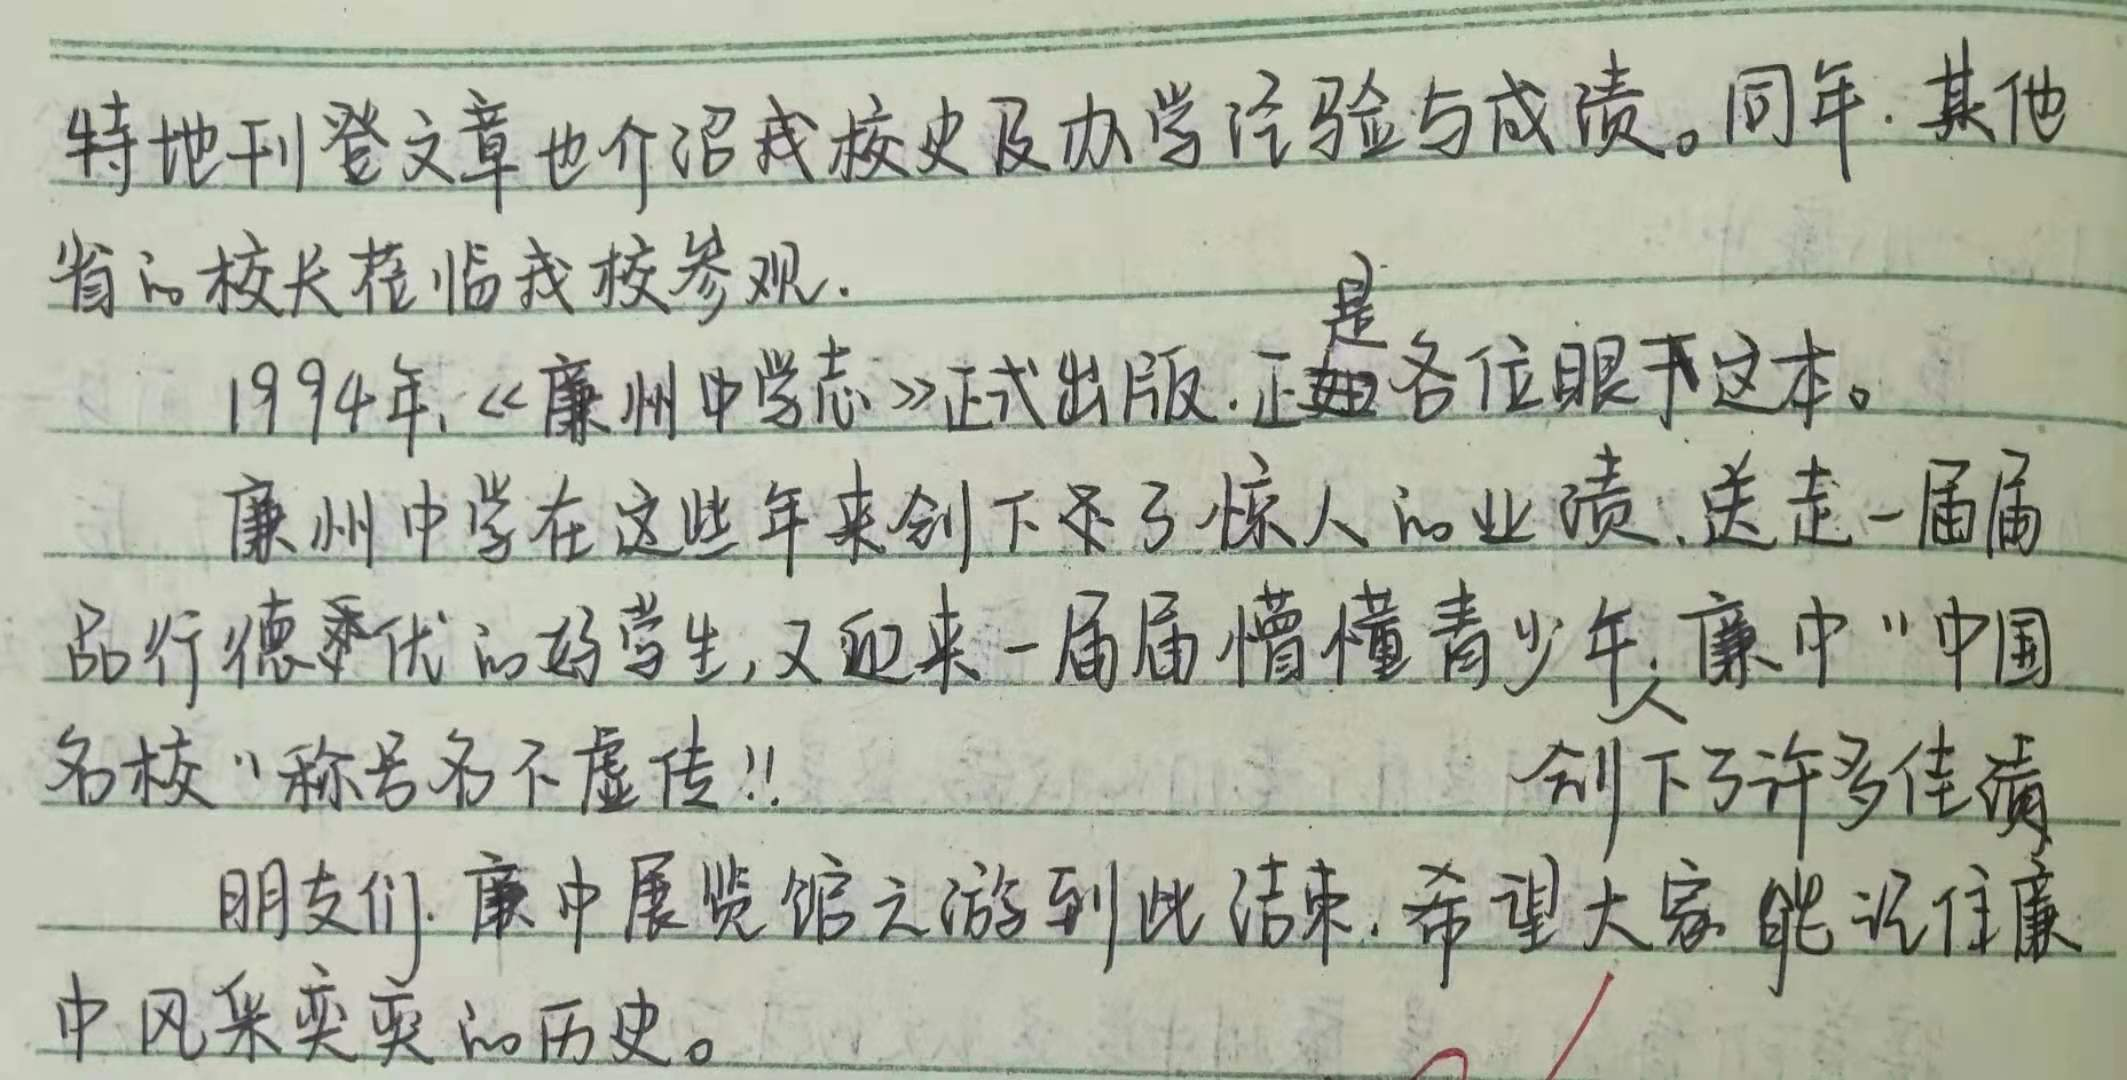 特地刊登文章也介沼我校史及办学经验与成渍。同年.其他
省的校长莅临我校参观.
是
1994年,《廉州中学志》正式出版.正各位眼下这本。
廉州中学在这些年来创下了惊人的业渍,送走一届届
品行德季优的好学生,又迎来一届届懵懂青少年,廉中"中国
名校"称号名不虚传!!
创下了许多佳渍
朋友们.廉中展览馆之游到此结束.希望大家能记住廉
中风采奕奕的历史。